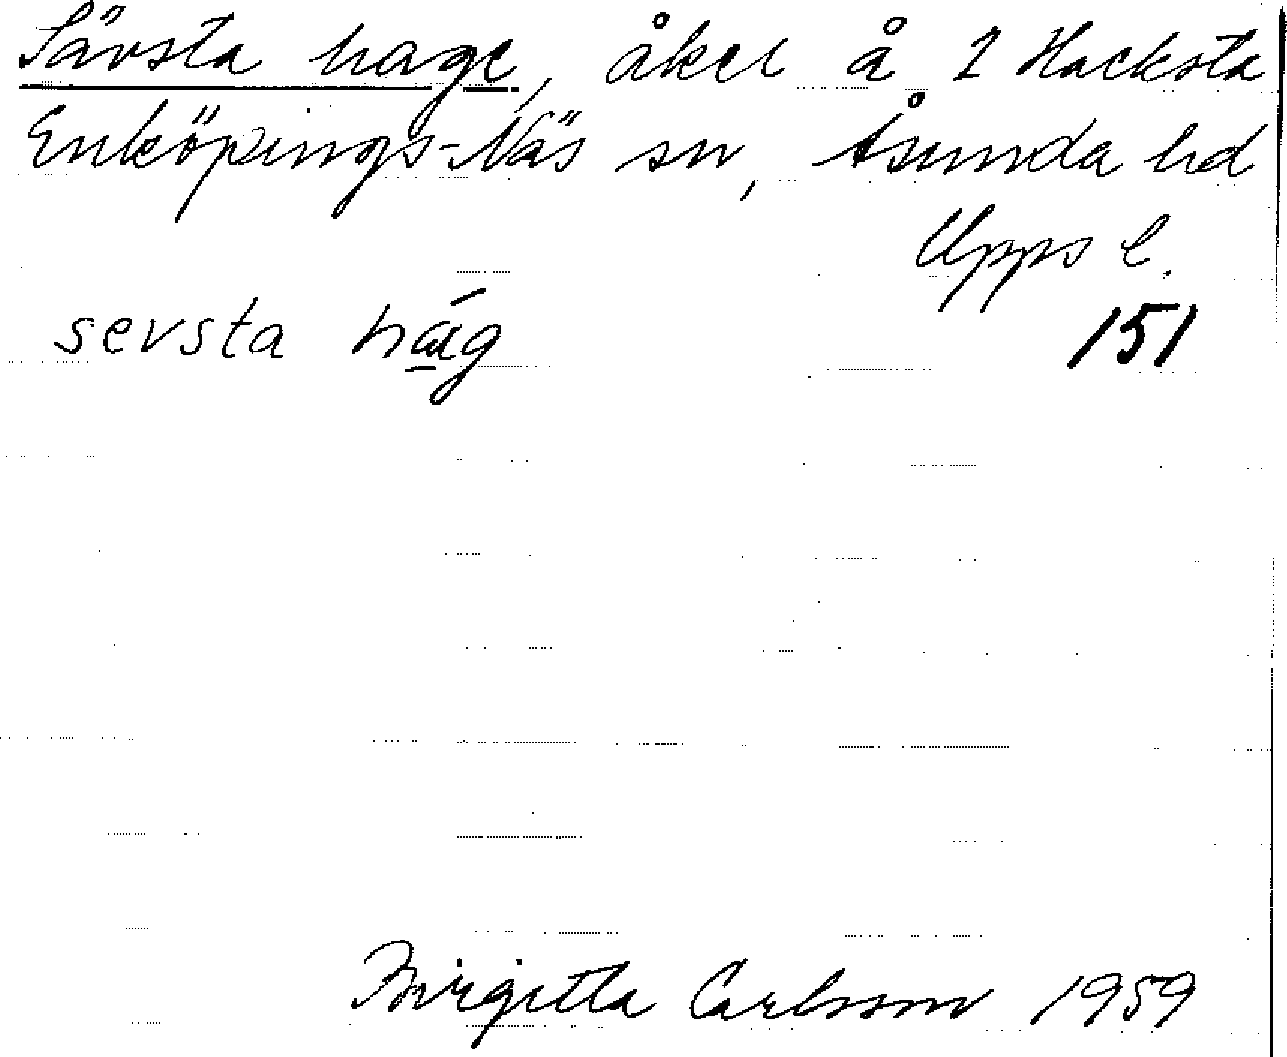 Sävsta hage, åker å 2 Hacksta
Enköpings-Näs sn, Åsunda hd
Upps l.
sevsta
151
Birgitta Carlsson 1959